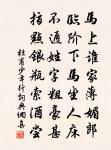 馬上誰家薄媚郎
臨階下馬坐人床
不通姓字粗豪甚
指點銀瓶索酒嘗
杜甫少年行詞典網